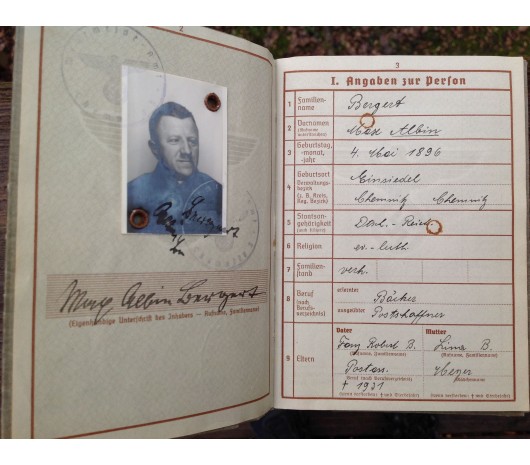 Max Albin Bergert
(Eigenhändige Unterschrift des Inhabers — Rufname, Familienname)
3
I. Angaben zur Person
1 Familien-name Bergert
2 Vornamen (Rufname unterstreichen) Max Albin
3 Geburtstag, -monat, -jahr 4. Mai 1896
4 Geburtsort Verwaltungsbezirk (z. B. Kreis, Reg. Bezirk) Einsiedel
Chemnitz Chemnitz
5 Staatsan-gehörigkeit (auch frühere) Dtsch. - Reich
6 Religion ev. - luth
7 Familien-stand verh.
8 Beruf (nach Berufs-verzeichnis) erlernter Bäcker
ausgeübter Postschaffner
Vater Mutter
9 Eltern Robert B. B.
(Rufname, Familienname) (Rufname, Familienname)
† 1931